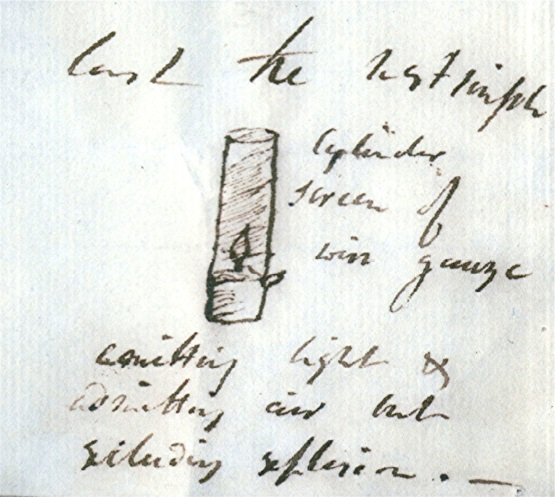 last the most simple
Cylinder
screen of
wire gauze
emitting light &
admitting air but
excluding explosion. —